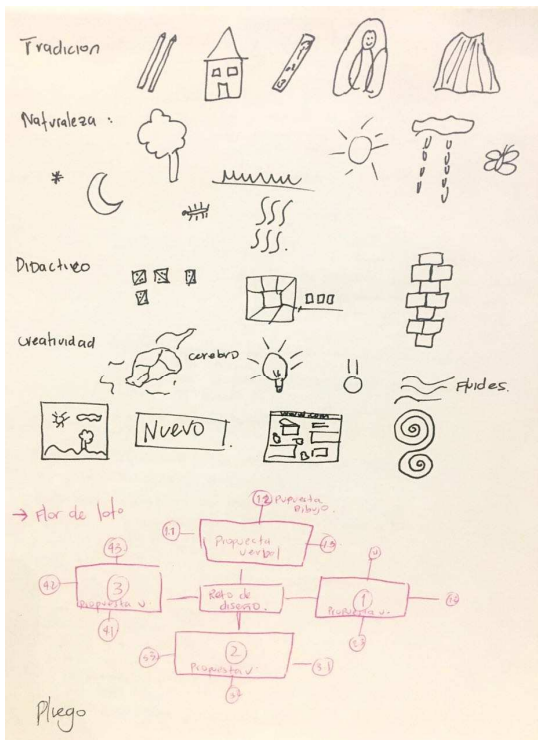 Tradicion
Naturaleza :
Didactico
creatividad
cerebro
Fluides.
NUEVO
→ Flor de loto
1.2 Pupuesta
Dibujo.
1.1
Propuesta
verbal
43
42
3
Propuesta v
41
Reto de
diseño.
1
Propuesta v.
2
Propuesta v.
33
31
Pliego